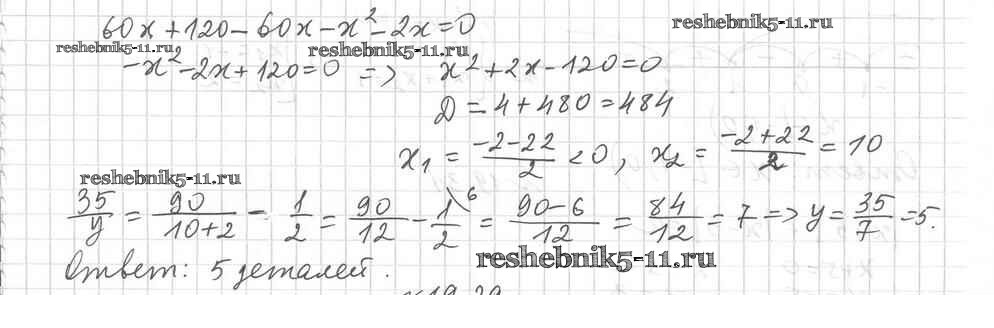 60x+120-60x-x²-2x=0
reshebnik5-11.ru
reshebnik5-11.ru reshebnik5-11.ru
-x²-2x+120=0 => x²+2x-120=0
D=4+480=484
x₁ = (-2-22)/2 <0, x₂ = (-2+22)/2 = 10
reshebnik5-11.ru
35/y = 90/(10+2) - 1/2 = 90/12 - 1/2 \6 = (90-6)/12 = 84/12 = 7 => y = 35/7 = 5.
reshebnik5-11.ru
Ответ: 5 деталей.